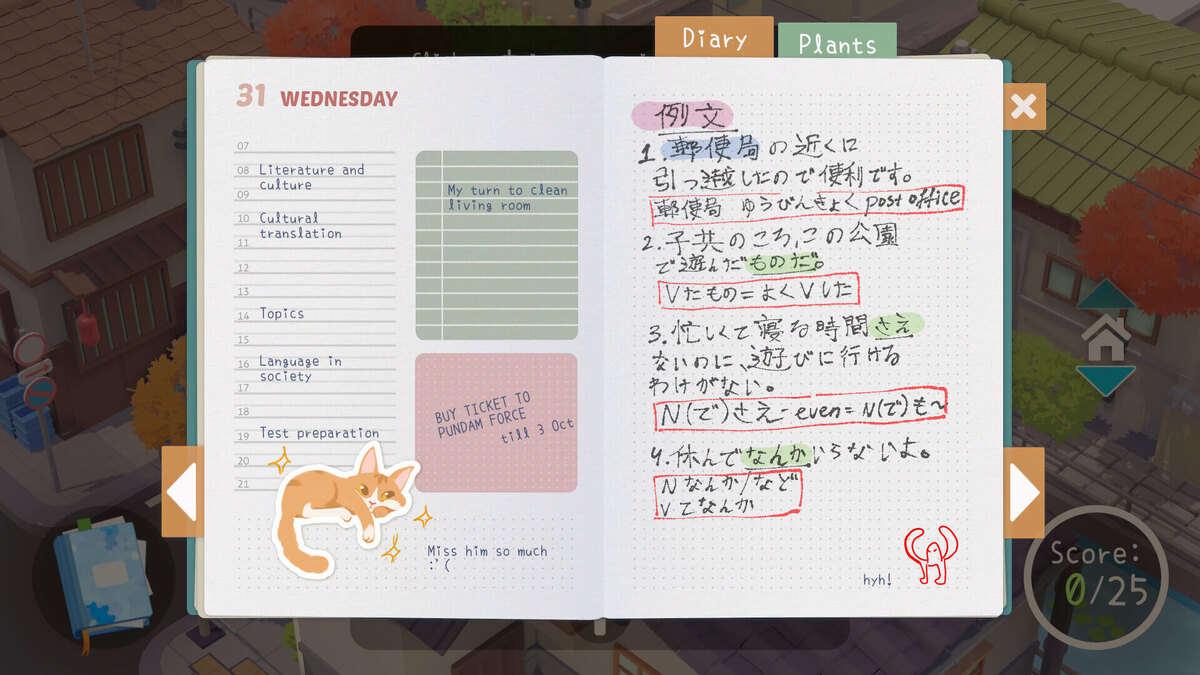 Diary
Plants
31 WEDNESDAY
07
08 Literature and
culture
09
10 Cultural
11 translation
12
13
14 Topics
15
16 Language in
society
17
18
19 Test preparation
20
21
My turn to clean
living room
BUY TICKET TO
PUNDAM FORCE
till 3 Oct
Miss him so much
:'(
例文
1.郵便局の近くに
引っ越したので便利です。
郵便局 ゆうびんきょく post office
2.子共のころ、この公園
で遊んだものだ。
Vたもの=よくVした
3.忙しくて寝る時間さえ
ないのに、遊びに行ける
わけがない。
N(で)さえ-even=N(で)も~
4.休んでなんかいらないよ。
Nなんか/など
Vてなんか
hyh!
Score:
0/25